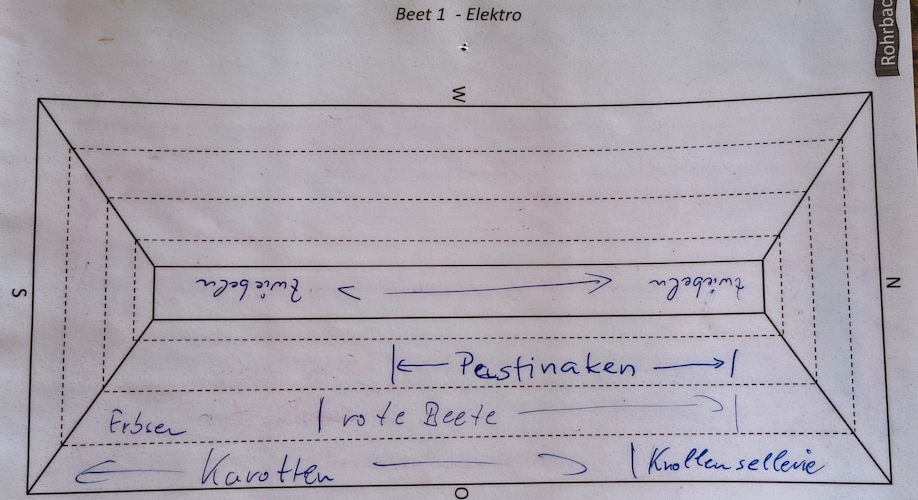 Beet 1 - Elektro
Rohrbac
W
S
N
Zwiebeln
Zwiebeln
Pastinaken
Erbsen
rote Beete
Karotten
Knollensellerie
O